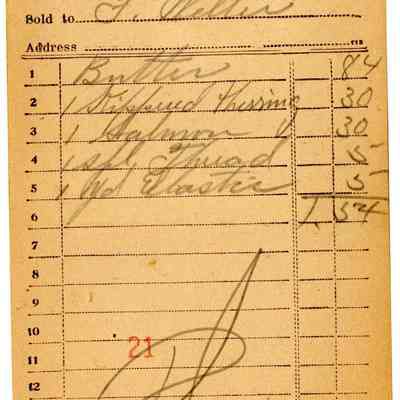 Sold to T. Welter
Address
1 Butter 84
2 1 Kippered Herring 30
3 1 Salmon 30
4 1 spl Thread 5
5 1 yd Elastic 5
6 1.54
7
8
9
10
21
11
12